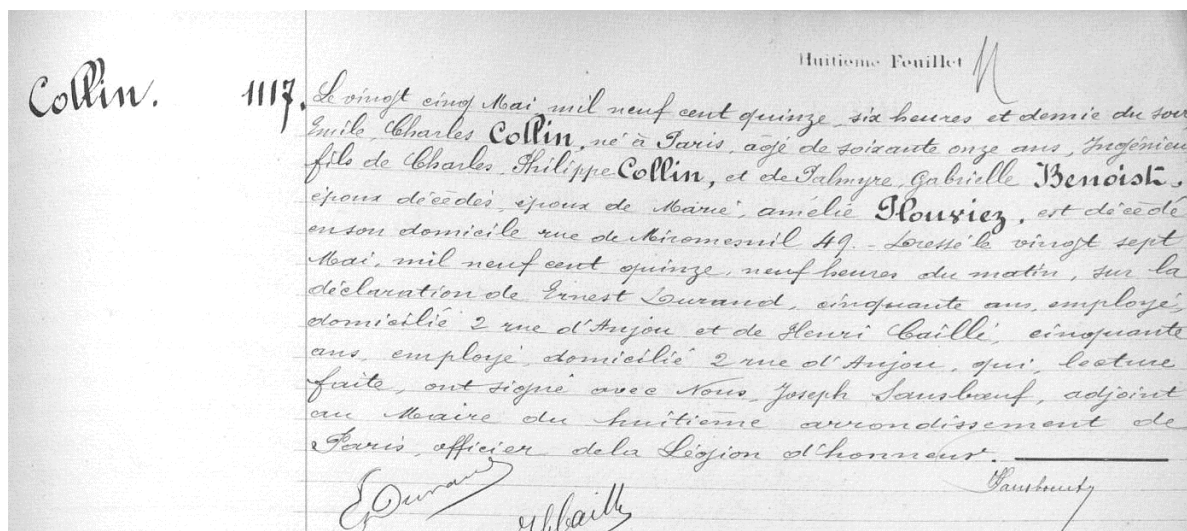 Huitième Feuillet
Collin. 1117. Le vingt cinq Mai mil neuf cent quinze, six heures et demie du soir
Emile, Charles Collin, né à Paris, âgé de soixante onze ans, Ingénieu
fils de Charles, Philippe Collin, et de Palmyre, Gabrielle Benoist,
époux décédés, époux de Marie, amélie Plouviez, est décédé
en son domicile rue de Miromesnil 49. - Dressé le vingt sept
Mai, mil neuf cent quinze, neuf heures du matin, sur la
déclaration de Ernest Durand, cinquante ans, employé,
domicilié 2 rue d'Anjou et de Henri Caillé, cinquante
ans, employé, domicilié 2 rue d'Anjou, qui, lecture
faite, ont signé avec Nous, Joseph Sansbœuf, adjoint
au Maire du huitième arrondissement de
Paris, officier de la Légion d'honneur.
Sansboeuf
E Durand
H Caillé